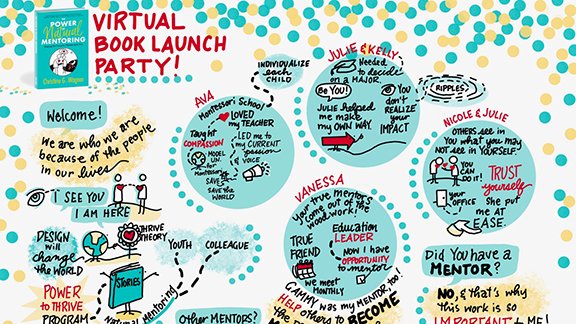 The
POWER
of Natural
MENTORING
Christine G. Wagner
VIRTUAL
BOOK LAUNCH
PARTY!
Welcome!
We are who we are
because of the people
in our lives
I SEE YOU
I AM HERE
DESIGN
will
CHANGE
the WORLD
THRIVE
THEORY
POWER
to THRIVE
PROGRAM
STORIES
Natural Mentoring
YOUTH
COLLEAGUE
Other MENTORS?
AVA
Montessori School
I LOVED
my TEACHER
Taught
COMPASSION
MODEL
U.N.
for
Montessori
LED me to
my CURRENT
passion
VOICE
SAVE
SAVE the
WORLD
INDIVIDUALIZE
each
CHILD
JULIE & KELLY
Needed
to decide
on a MAJOR.
Be YOU!
JULIE helped
me make
my OWN WAY.
YOU
don't
REALIZE
your
IMPACT
RIPPLES
VANESSA
Your true Mentors
come out of the
woodwork!
TRUE
FRIEND
Education
LEADER
Now I have
OPPORTUNITY
to mentor
WE meet
MONTHLY
GAMMY was my MENTOR, too!
HELP others to BECOME
NICOLE & JULIE
OTHERS SEE in
YOU what you may
NOT see in YOURSELF.
YOU
CAN
DO it!
TRUST
yourself
your
OFFICE
SHE put
me AT
EASE.
Did You have a
MENTOR?
NO, & that's why
this work is so
IMPORTANT to ME!